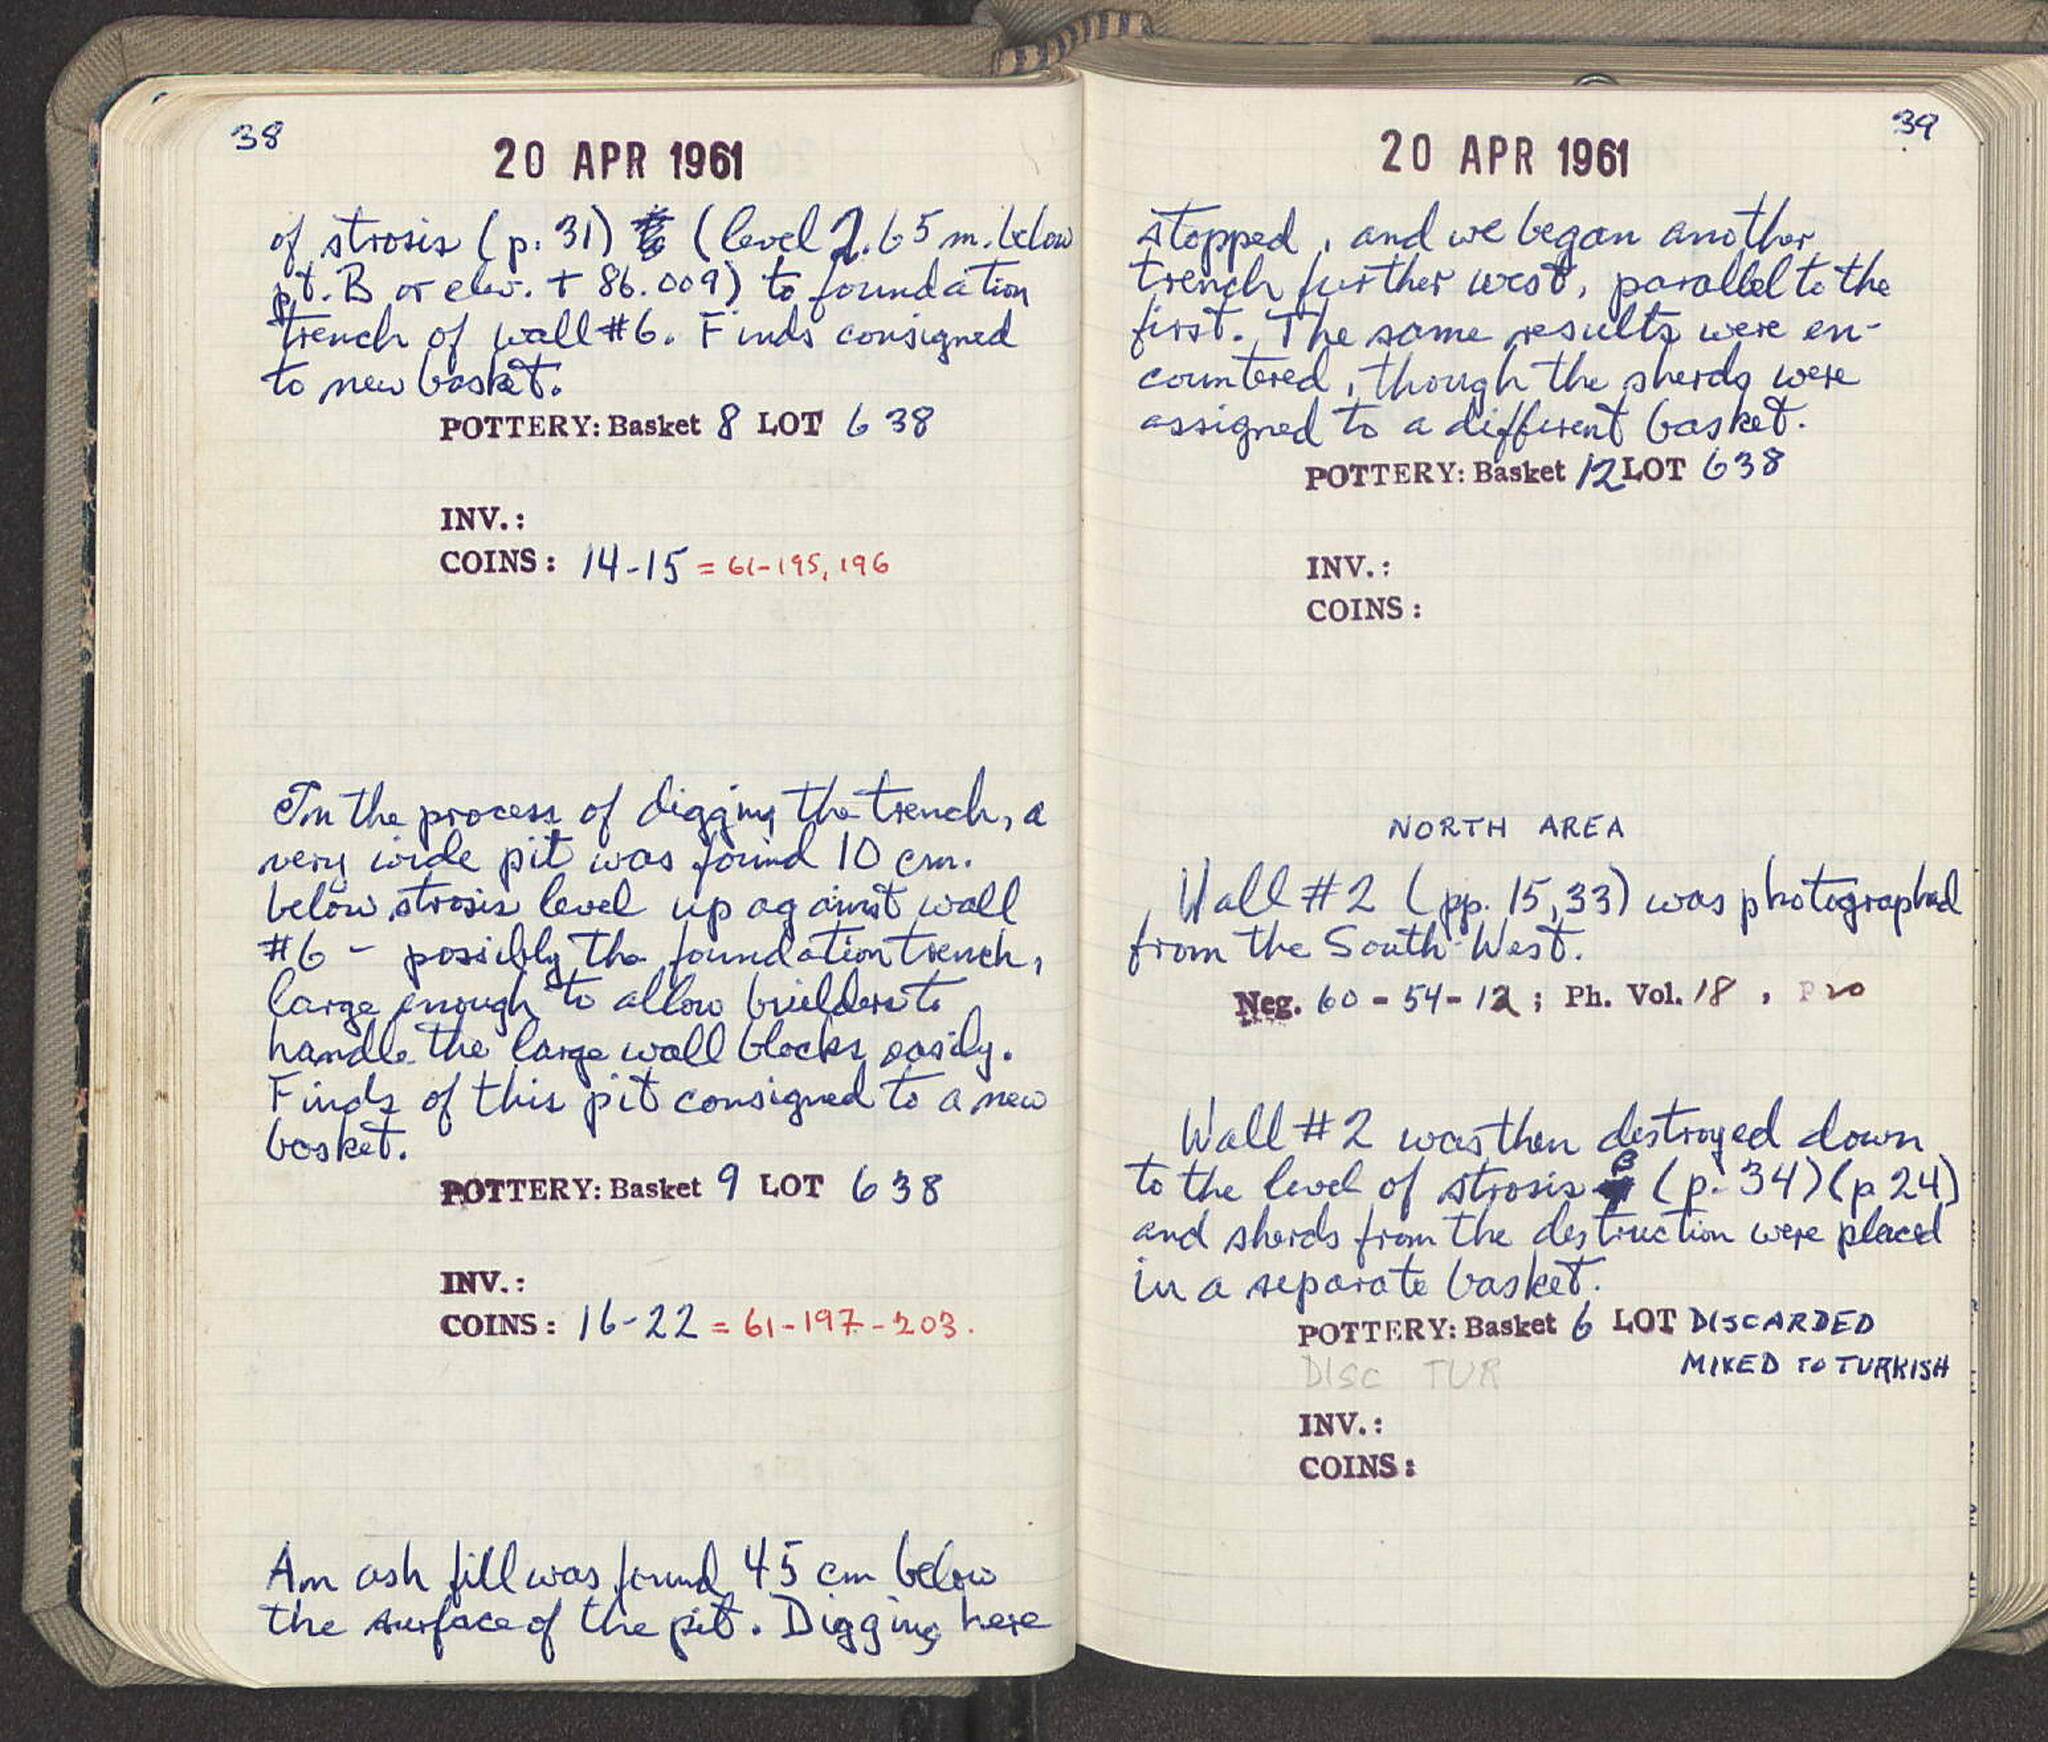 38
20 APR 1961
of strosis (p. 31) (level 2.65 m. below
pt. B or elev. + 86.009) to foundation
trench of wall #6. Finds consigned
to new basket.
POTTERY: Basket 8 LOT 638
INV.:
COINS: 14-15 = 61-195, 196
In the process of digging the trench, a
very wide pit was found 10 cm.
below strosis level up against wall
#6 - possibly the foundation trench,
large enough to allow builders to
handle the large wall blocks easily.
Finds of this pit consigned to a new
basket.
POTTERY: Basket 9 LOT 638
INV.:
COINS: 16-22 = 61-197-203.
An ash fill was found 45 cm below
the surface of the pit. Digging here
39
20 APR 1961
stopped, and we began another
trench further west, parallel to the
first. The same results were en-
countered, though the sherds were
assigned to a different basket.
POTTERY: Basket 12 LOT 638
INV.:
COINS:
NORTH AREA
Wall #2 (pp. 15, 33) was photographed
from the South-West.
Neg. 60-54-12; Ph. Vol. 18, P 20
Wall #2 was then destroyed down
to the level of strosis β (p. 34) (p 24)
and sherds from the destruction were placed
in a separate basket.
POTTERY: Basket 6 LOT DISCARDED
MIXED TO TURKISH
DISC TUR
INV.:
COINS: